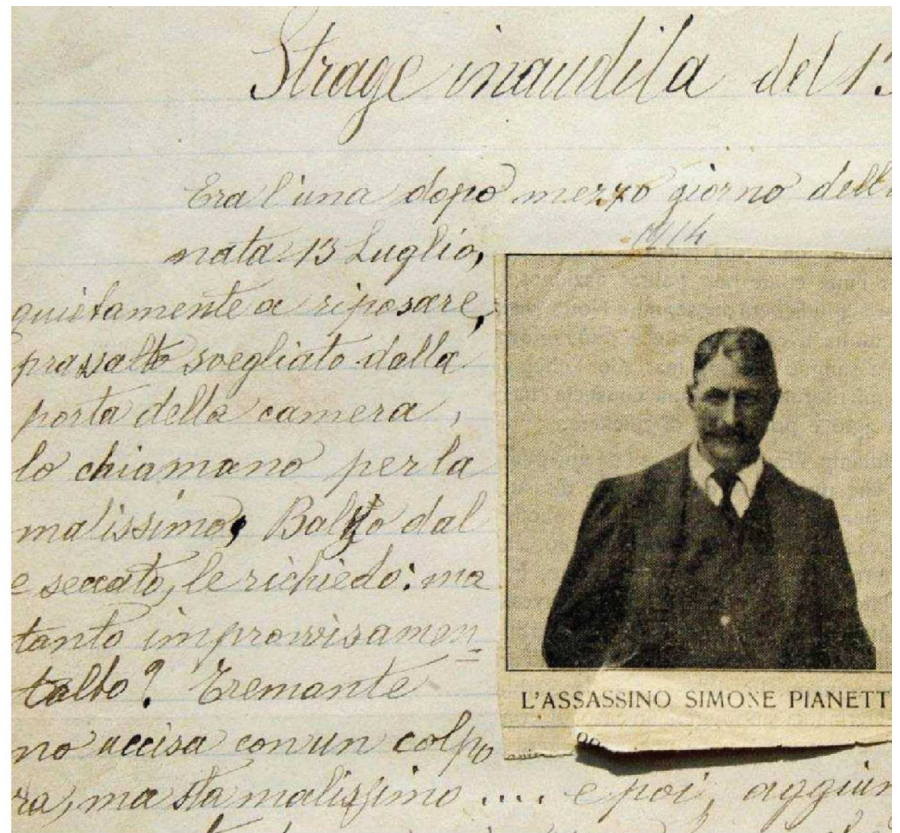 Strage inaudita del 13
Era l'una dopo mezzo giorno dell
1914
nata 13 Luglio,
quietamente a riposare,
prassalto svegliato dalla
porta della camera,
lo chiamano per la
malissimo, Balzo dal
e seccato, le richiedo: ma
tanto improvvisamen=
talto? Tremante
no uccisa con un colpo
ra, ma sta malissimo .... e poi, aggiun
L'ASSASSINO SIMONE PIANETT